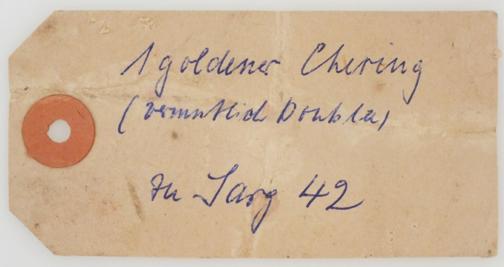 1 goldener Ehering
(vermutlich Double)
zu Sarg 42